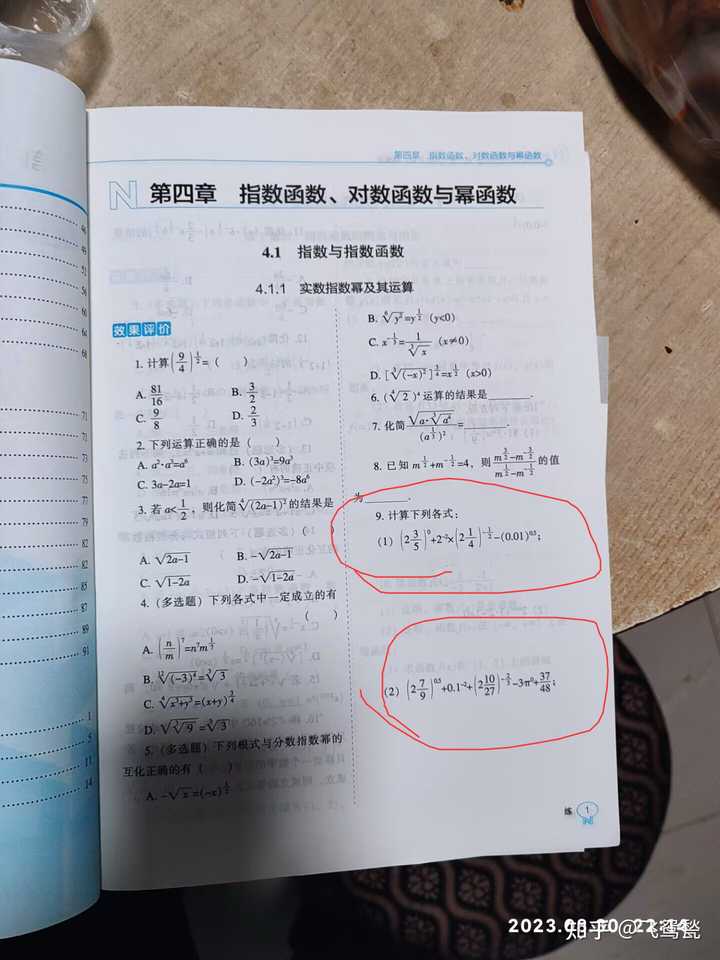 第四章 指数函数、对数函数与幂函数
N 第四章 指数函数、对数函数与幂函数
4.1 指数与指数函数
4.1.1 实数指数幂及其运算
效果评价
1. 计算(9/4)^{1/2}=( )
A. 81/16 B. 3/2
C. 9/8 D. 2/3
2. 下列运算正确的是( )
A. a²·a³=a⁶ B. (3a)³=9a³
C. 3a-2a=1 D. (-2a²)³=-8a⁶
3. 若 a<1/2，则化简⁴√(2a-1)²的结果是
( )
A. √2a-1 B. -√2a-1
C. √1-2a D. -√1-2a
4. (多选题) 下列各式中一定成立的有
( )
A. (n/m)⁷=n⁷m^{1/7}
B. ¹²√(-3)⁴=³√3
C. ⁴√x³+y³=(x+y)^{3/4}
D. √³√9=³√3
5. (多选题) 下列根式与分数指数幂的
互化正确的有( )
A. -√x=(-x)^{1/2}
B. ⁶√y²=y^{1/2} (y<0)
C. x^{-1/3}=1/³√x (x≠0)
D. [³√(-x)²]^{3/4}=x^{1/2} (x>0)
6. (⁴√2)⁴运算的结果是______.
7. 化简√a·³√a⁴/(a^{1/3})²=______.
8. 已知 m^{1/2}+m^{-1/2}=4，则 m^{3/2}-m^{-3/2}/m^{1/2}-m^{-1/2} 的值
为______.
9. 计算下列各式:
(1) (2 3/5)⁰+2⁻²×(2 1/4)^{-1/2}-(0.01)^{0.5};
(2) (2 7/9)^{0.5}+0.1⁻²+(2 10/27)^{-2/3}-3π⁰+37/48;
练 1
44
49
51
56
60
64
68
71
71
74
77
79
82
82
85
87
89
91
1
5
11
14
2023.08.30 22:14
知乎 @飞鸳甃